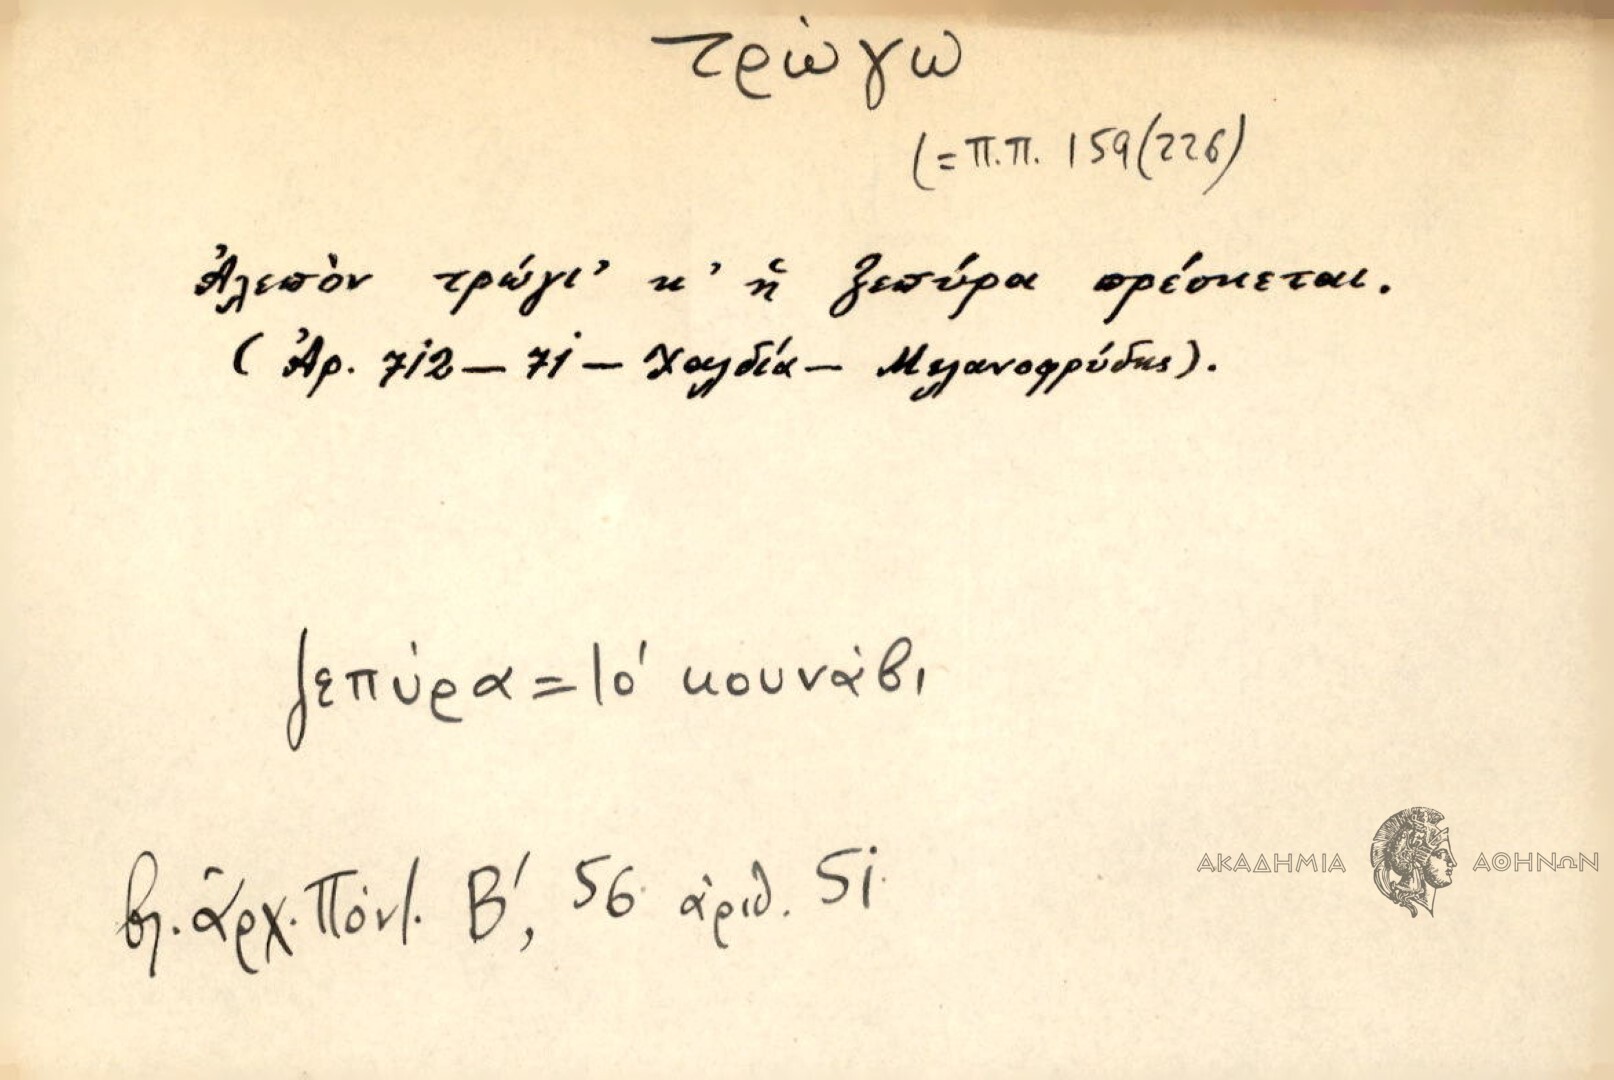 τρώγω
(= π.π. 159 (226)
Ἀλεπὸν τρώγι' κ' ἡ ζεπύρα πρέσκεται.
(Ἀρ. 712 – 71 – Χαλδία – Μελανοφρύδης).
ζεπύρα = τό κουνάβι
βλ. ἀρχ. Πόντ. Β', 56 ἀριθ. 51
ΑΚΑΔΗΜΙΑ ΑΘΗΝΩΝ